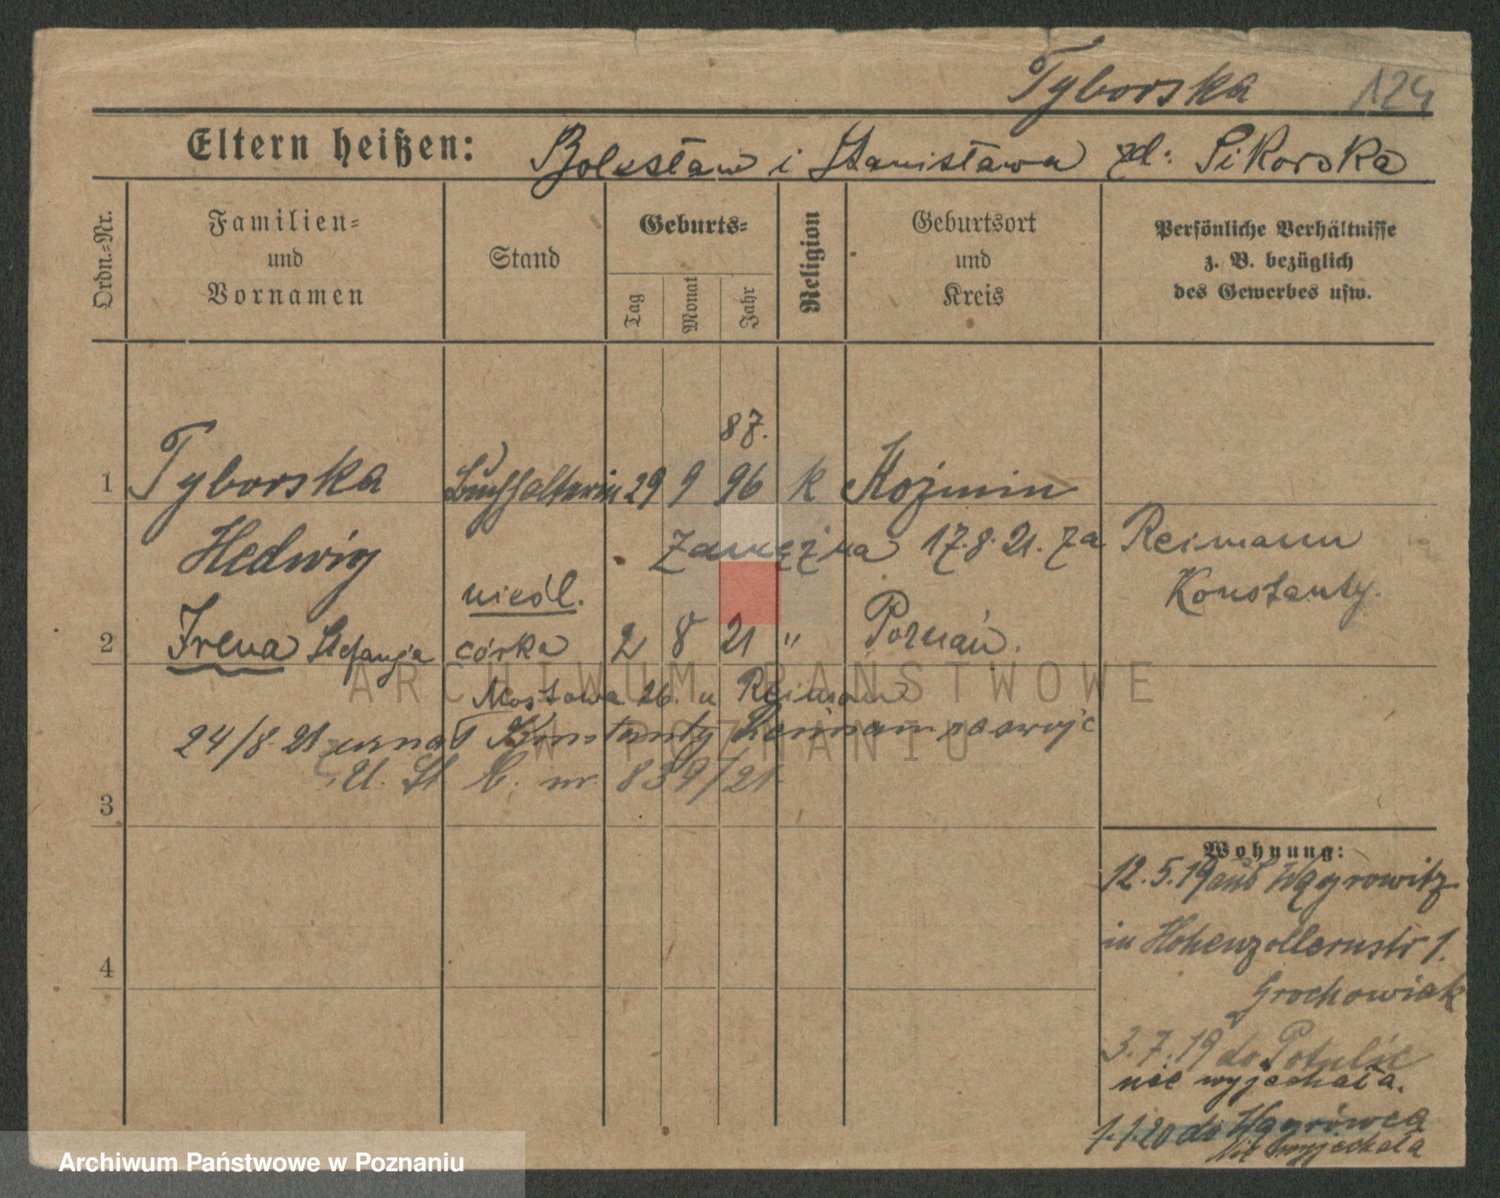 Tyborska 124
Eltern heißen: Bolesław i Stanisława zd: Sikorska
Ordn.=Nr.
Familien=
und
Vornamen
Stand
Geburts=
Tag
Monat
Jahr
Religion
Geburtsort
und
Kreis
Persönliche Verhältnisse
z. B. bezüglich
des Gewerbes usw.
87.
1 Tyborska Buchhalterin 29 9 96 k Koźmin
Hedwig Zamężna 17.8.21. za Reimann
Konstanty.
nieśl.
2 Irena Stefanja córka 2 8 21 " Poznań.
Mostowa 26. u Reiman
24/8.21 uznał Konstanty Reimann za swoje
U. St. C. nr. 839/21
3
4
Wohnung:
12.5.19 aus Wągrowitz
in Hohenzollernstr 1.
Grochowiak
3.7.19 do Potulic
nie wyjechała.
1.1.20 do Wągrówca
nie wyjechała
ARCHIWUM PAŃSTWOWE
W POZNANIU
Archiwum Państwowe w Poznaniu